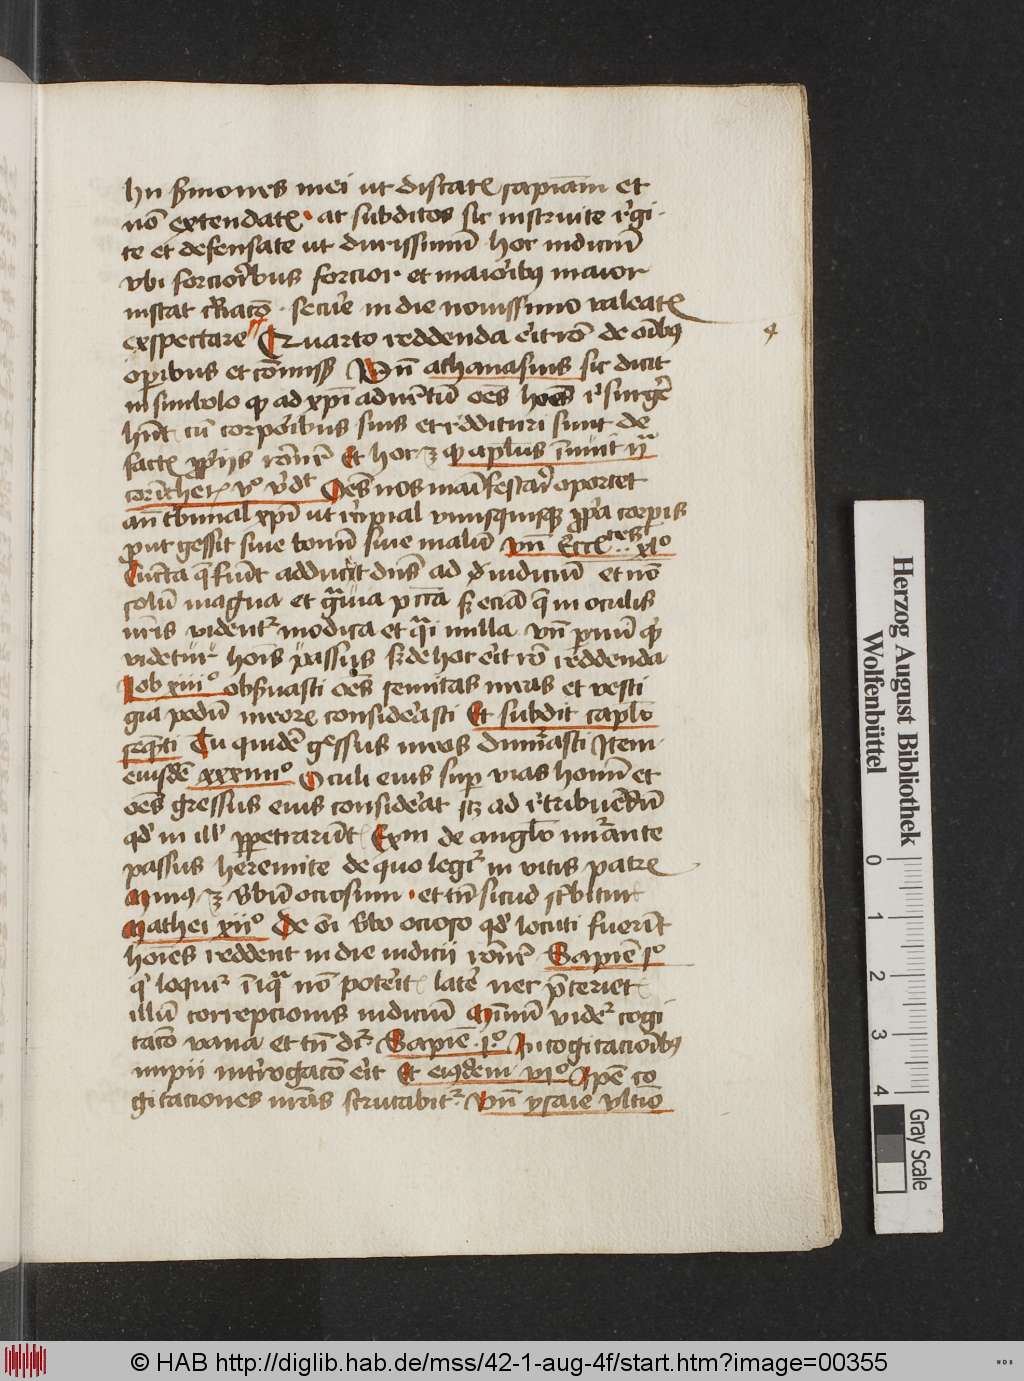 hii sermones mei ut discatis sapienciam et
nō extendatꝭ · at subditos sic instruite regi·
te et defensate ut durissimū hoc iudiciū
vbi forcioribus forcior et maioribꝰ maior
instat secure in die nouissimo valeatꝭ
exspectare Quarto reddenda erit rō de oībꝰ
opibus et cōmissꝭ Vn̄ athanasius sic dicit
in simbolo ꝙ ad xpī aduentū oēs hoēs resurgere
hn̄t cū corporibus suis et reddituri sunt de
factꝭ ꝓprijs Et hoc ꝫ ꝙ aplūs
corinther v° Oēs nos manifestari oportet
an̄ tbunal xpī ut vnusquisqꝫ ꝓpria corporis
put gessit siue bonū siue malū vn̄ Eccꝭtes
Cuncta q̄ fiūt adducit dn̄s ad iudiciū et nō
solū magna et gͣuia pcc̄a sꝫ eciā q̄ in oculis
nr̄is videntʳ modica et qͣsi nulla vn̄
videtur hoīs passus sꝫ de hoc erit rō reddenda
Iob xiii° obseruasti oēs semitas meas et vesti
gia pedū meorꝭ considerasti Et subdit caplō
seqn̄ti Tu quidē gressus meos dinumerasti Item
eiusdē xxxiiii° Oculi eius super vias hoīm et
oēs gressus eius considerat
qd' in ill' ppetrarūt Exm de angelo numerante
passus heremite de quo legitʳ in vitis patrꝭ
Minꝰ ꝫ v̄bū ociosum · et tn̄ sicud scͥbitur
Mathei xii° De oī v̄bo ocioso qd' locuti fuerīt
hoīes reddent in die iudicii Sapiē
q' loquitʳ iniqua nō poterit latere nec p̄teriet
illū correpcionis iudiciū Minimū videtʳ cogi
tacō vana et tn̄ dr̄ Sapiē · p° In cogitacioībꝰ
impii introgacō erit Et eiusdem vi° Ipē co
gitaciones nr̄as scrutabitʳ Vn̄ ysaie vltīo
4
Herzog August Bibliothek
Wolfenbüttel
0 1 2 3 4
Gray Scale
© HAB http://diglib.hab.de/mss/42-1-aug-4f/start.htm?image=00355